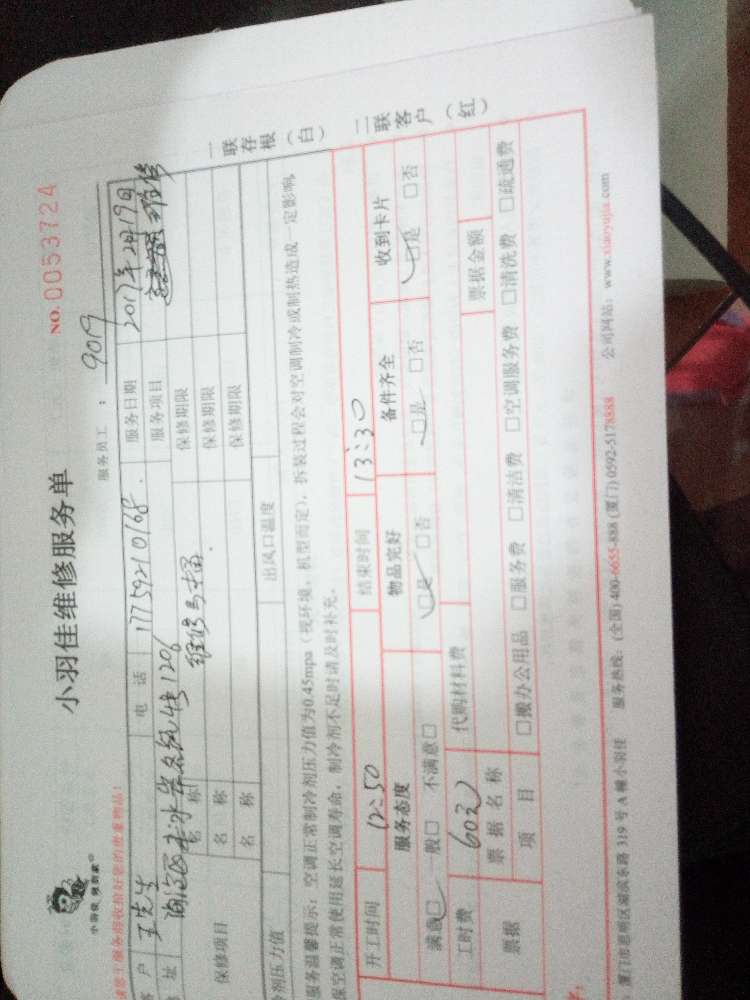 小羽佳 教到家
小羽佳维修服务单
NO.0053724
服务员工：9019
请您于服务前收拾好您的贵重物品！
客户 王先生 电话 17759210168. 服务日期 2017年2月19日
地址 1206 服务项目 维修
保修项目 名称 维修马桶. 保修期限
名称 保修期限
名称 保修期限
制剂压力值 出风口温度
服务温馨提示：空调正常制冷剂压力值为0.45mpa（视环境、机型而定），拆装过程会对空调制冷或制热造成一定影响，
保空调正常使用延长空调寿命，制冷剂不足时请及时补充。
一联存根（白）
开工时间 12:50 结束时间 13:30
服务态度 物品完好 备件齐全 收到卡片
满意□ 一般□ 不满意□ □是 □否 □是 □否 □是 □否
工时费 60元 代购材料费 票据金额
票据 票据名称
项目 □搬办公用品 □服务费 □清洁费 □空调服务费 □清洗费 □疏通费
二联客户（红）
厦门市思明区湖滨东路 319 号 A 幢小羽佳 服务热线：(全国) 400-6655-888 (厦门) 0592-5178888 公司网站：www.xiaoyujia.com